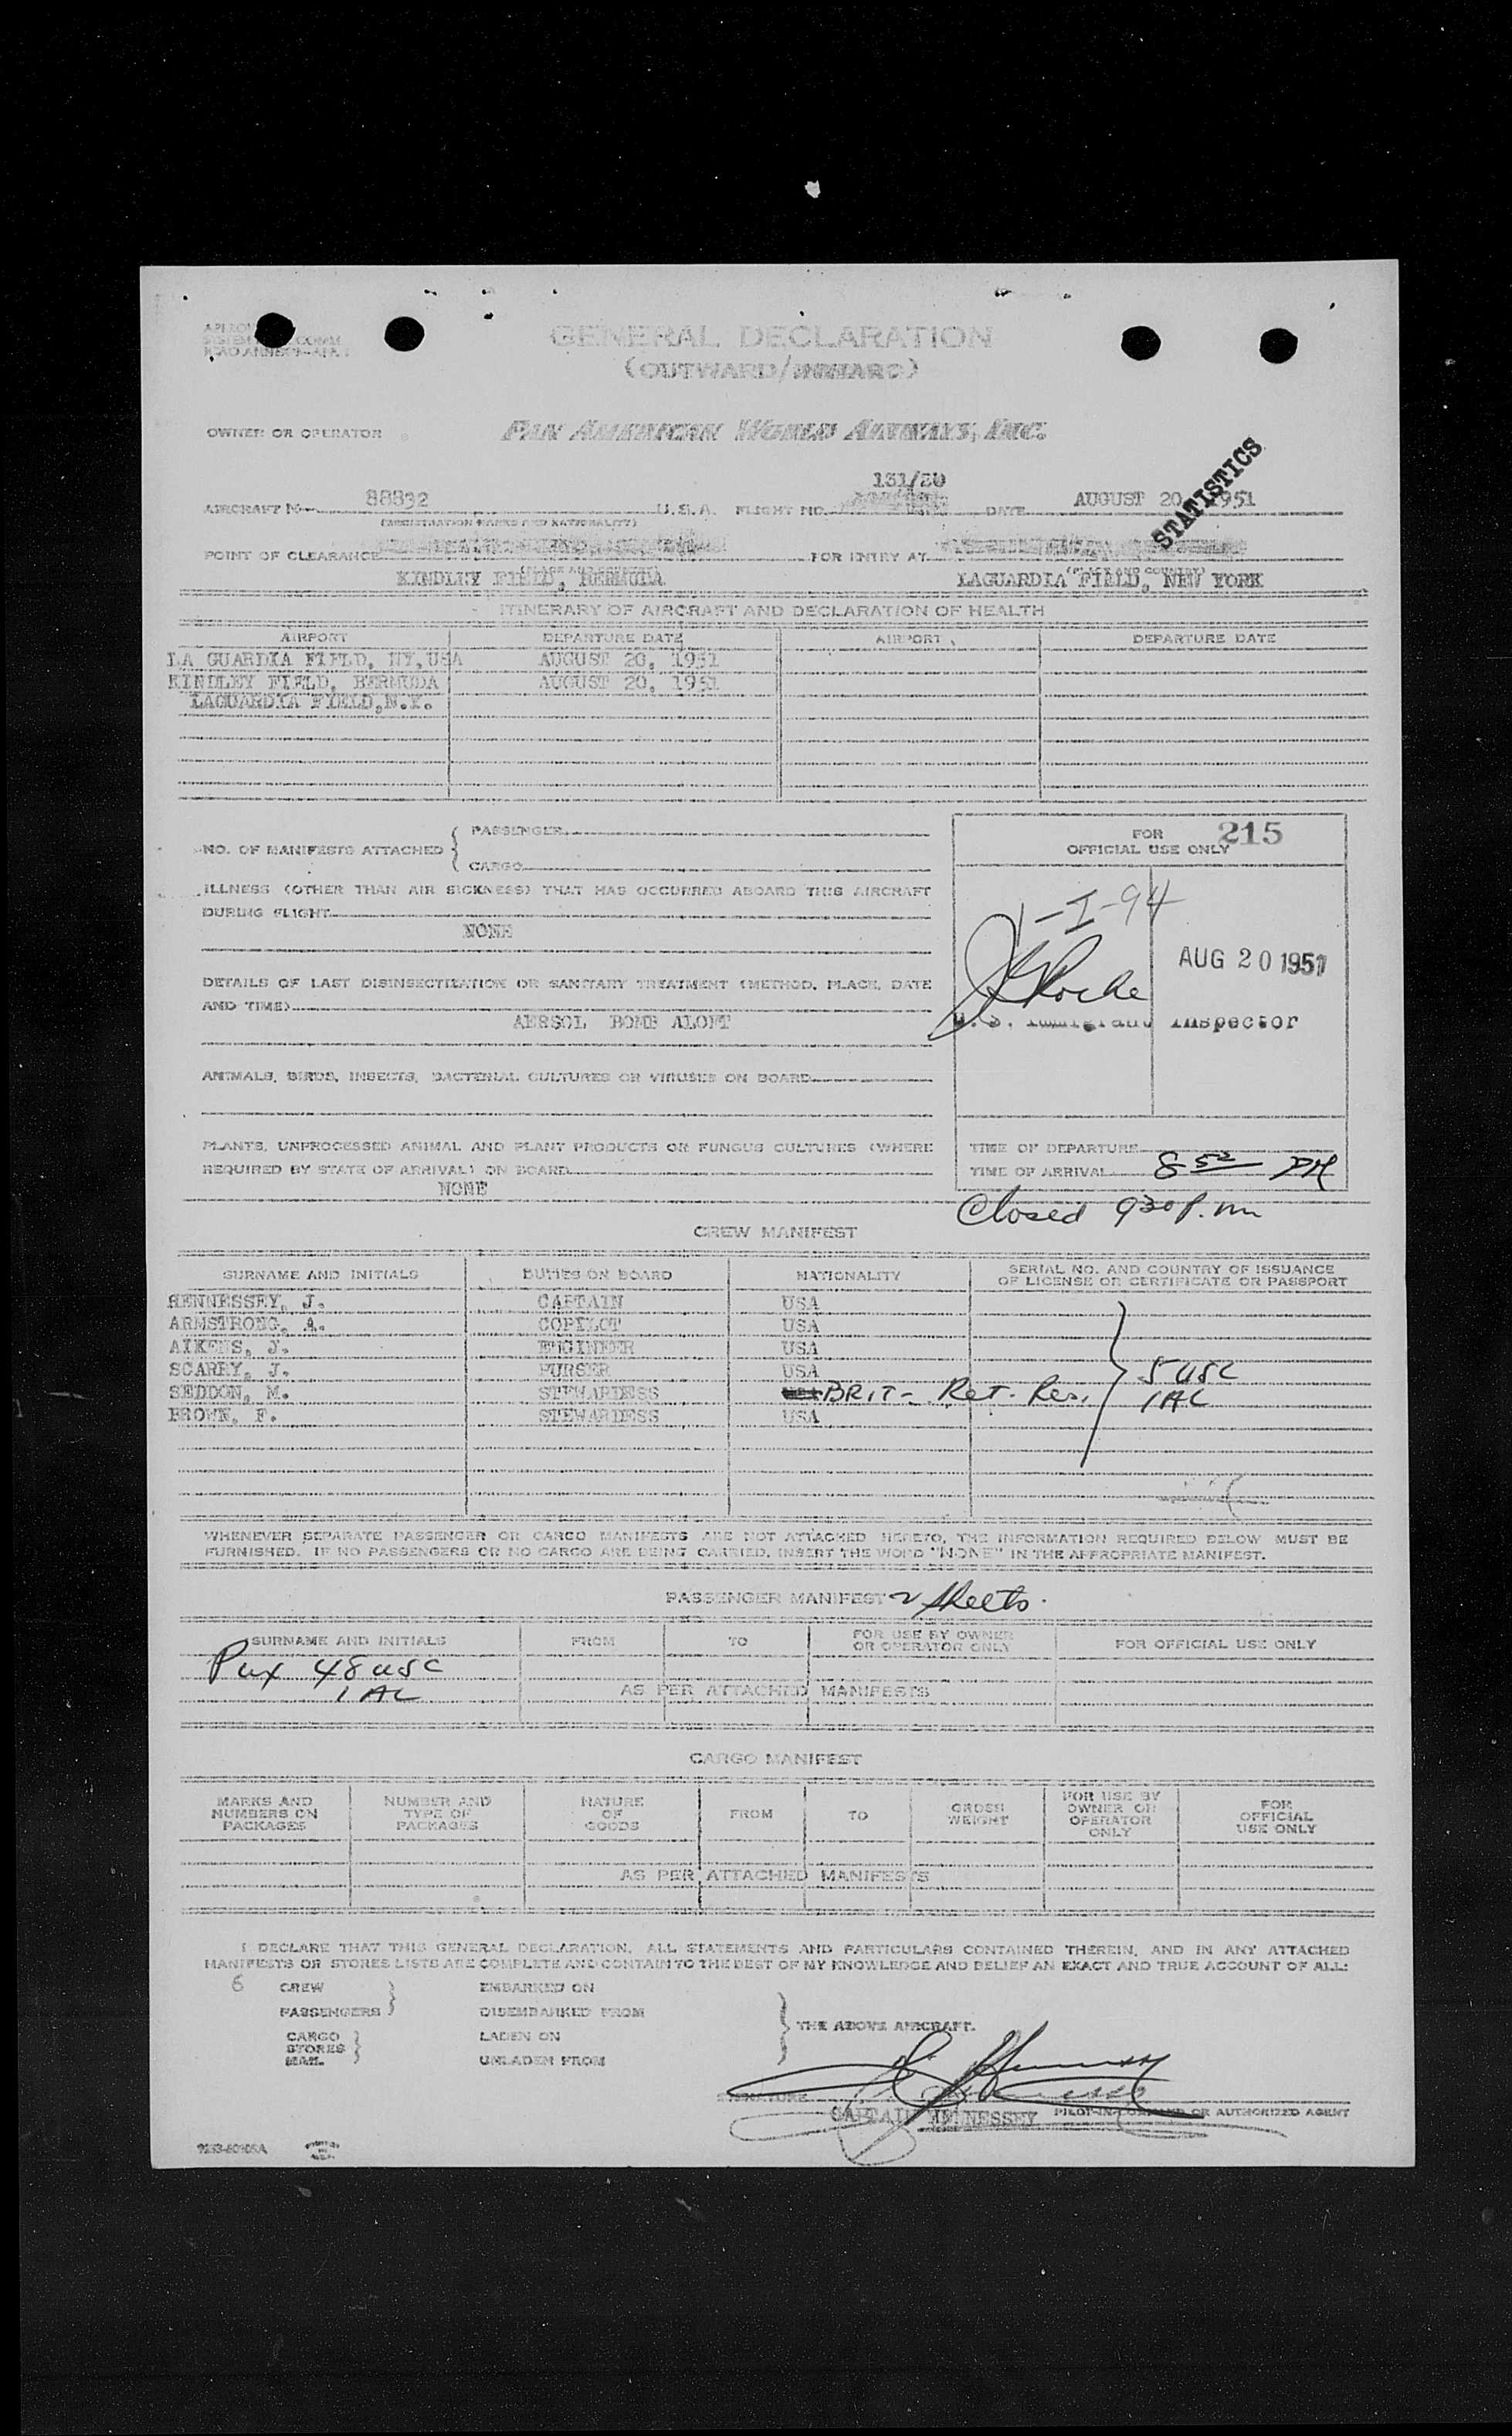 GENERAL DECLARATION
(OUTWARD/INWARD)
OWNER OR OPERATOR PAN AMERICAN WORLD AIRWAYS, INC.
STATISTICS
131/20
AIRCRAFT 88832 U.S.A. FLIGHT NO. DATE AUGUST 20, 1951
(REGISTRATION MARKS AND NATIONALITY)
POINT OF CLEARANCE FOR ENTRY AT
(PLACE AND COUNTRY) (PLACE AND COUNTRY)
KINDLEY FIELD, BERMUDA LAGUARDIA FIELD, NEW YORK
ITINERARY OF AIRCRAFT AND DECLARATION OF HEALTH
AIRPORT DEPARTURE DATE AIRPORT DEPARTURE DATE
LA GUARDIA FIELD, NY, USA AUGUST 20, 1951
KINDLEY FIELD, BERMUDA AUGUST 20, 1951
LAGUARDIA FIELD, N.Y.
NO. OF MANIFESTS ATTACHED { PASSENGER
CARGO
ILLNESS (OTHER THAN AIR SICKNESS) THAT HAS OCCURRED ABOARD THIS AIRCRAFT
DURING FLIGHT
NONE
DETAILS OF LAST DISINSECTIZATION OR SANITARY TREATMENT (METHOD, PLACE, DATE
AND TIME)
AERSOL BOMB ALOFT
ANIMALS, BIRDS, INSECTS, BACTERIAL CULTURES OR VIRUSES ON BOARD
PLANTS, UNPROCESSED ANIMAL AND PLANT PRODUCTS OR FUNGUS CULTURES (WHERE
REQUIRED BY STATE OF ARRIVAL) ON BOARD
NONE
FOR 215
OFFICIAL USE ONLY
1-I-94
Roche
AUG 20 1951
U.S. Immigrant Inspector
TIME OF DEPARTURE
TIME OF ARRIVAL 8 52 PM
Closed 930 P.m
CREW MANIFEST
SURNAME AND INITIALS DUTIES ON BOARD NATIONALITY SERIAL NO. AND COUNTRY OF ISSUANCE
OF LICENSE OR CERTIFICATE OR PASSPORT
HENNESSEY, J. CAPTAIN USA
ARMSTRONG, A. COPILOT USA
AIKENS, J. ENGINEER USA
SCARRY, J. PURSER USA 5 USC
SEDDON, M. STEWARDESS BRIT - Ret. Res. 1 AL
BROWN, F. STEWARDESS USA
WHENEVER SEPARATE PASSENGER OR CARGO MANIFESTS ARE NOT ATTACHED HERETO, THE INFORMATION REQUIRED BELOW MUST BE
FURNISHED. IF NO PASSENGERS OR NO CARGO ARE BEING CARRIED, INSERT THE WORD "NONE" IN THE APPROPRIATE MANIFEST.
PASSENGER MANIFEST 2 Sheets.
SURNAME AND INITIALS FROM TO FOR USE BY OWNER
OR OPERATOR ONLY FOR OFFICIAL USE ONLY
Pax 48 USC
1 AL AS PER ATTACHED MANIFESTS
CARGO MANIFEST
MARKS AND
NUMBERS ON
PACKAGES
NUMBER AND
TYPE OF
PACKAGES
NATURE
OF
GOODS
FROM
TO
GROSS
WEIGHT
FOR USE BY
OWNER OR
OPERATOR
ONLY
FOR
OFFICIAL
USE ONLY
AS PER ATTACHED MANIFESTS
I DECLARE THAT THIS GENERAL DECLARATION, ALL STATEMENTS AND PARTICULARS CONTAINED THEREIN, AND IN ANY ATTACHED
MANIFESTS OR STORES LISTS ARE COMPLETE AND CONTAIN TO THE BEST OF MY KNOWLEDGE AND BELIEF AN EXACT AND TRUE ACCOUNT OF ALL:
6 CREW } EMBARKED ON
PASSENGERS DISEMBARKED FROM
CARGO LADEN ON
STORES
MAIL UNLADEN FROM
THE ABOVE AIRCRAFT.
SIGNATURE
CAPTAIN HENNESSEY PILOT-IN-COMMAND OR AUTHORIZED AGENT